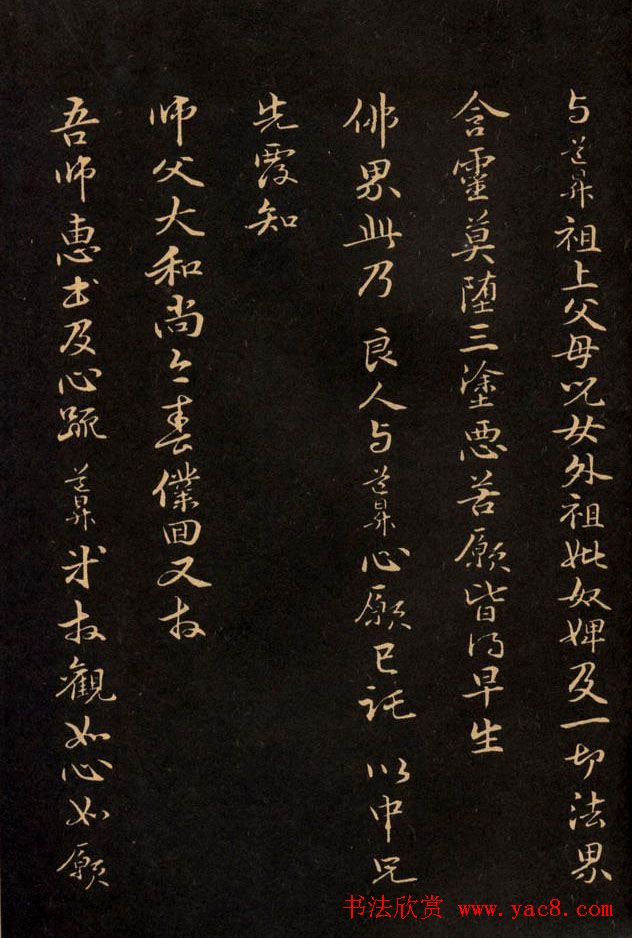 与道昇祖上父母兒女外祖妣奴婢及一切法界
含靈莫堕三塗惡苦願皆得早生
佛果此乃 良人与道昇心願已託 以中兄
先覆知
师父大和尚今春僕回又收
吾师惠书及心疏 道昇 收觀如心如願
书法欣赏 www.yac8.com